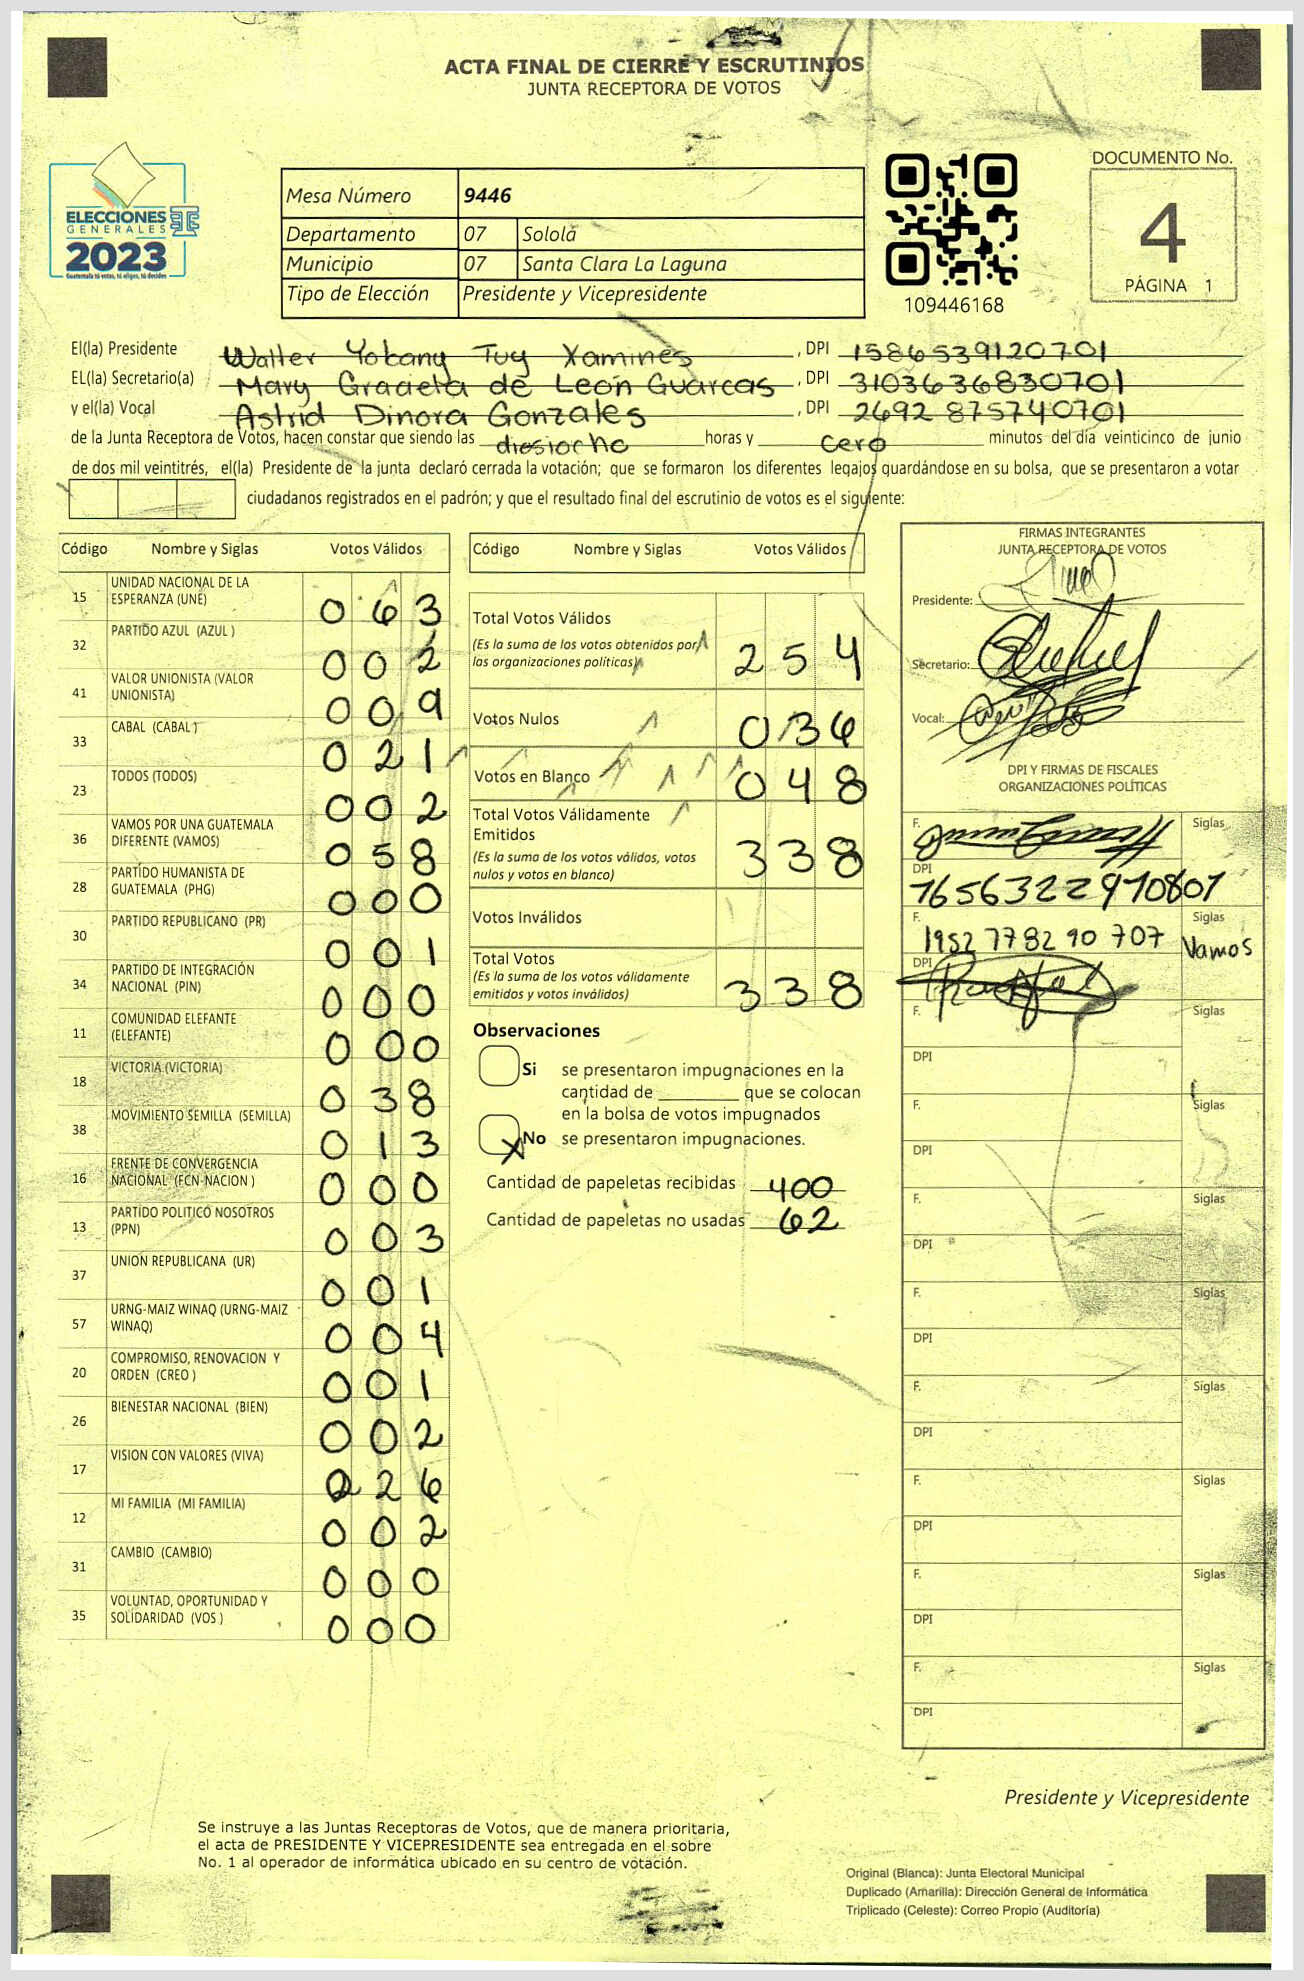 ACTA FINAL DE CIERRE Y ESCRUTINIOS
JUNTA RECEPTORA DE VOTOS
ELECCIONES
GENERALES
2023
Guatemala tú votas, tú eliges, tú decides
Mesa Número 9446
Departamento 07 Sololá
Municipio 07 Santa Clara La Laguna
Tipo de Elección Presidente y Vicepresidente
109446168
DOCUMENTO No.
4
PÁGINA 1
El(la) Presidente Walter Yobany Tuy Xamines , DPI 1586539120701
EL(la) Secretario(a) Mary Graciela de León Guarcas , DPI 3103636830701
y el(la) Vocal Astrid Dinora Gonzales , DPI 2692 875740701
de la Junta Receptora de Votos, hacen constar que siendo las diesiocho horas y cero minutos del día veinticinco de junio
de dos mil veintitrés, el(la) Presidente de la junta declaró cerrada la votación; que se formaron los diferentes legajos guardándose en su bolsa, que se presentaron a votar
ciudadanos registrados en el padrón; y que el resultado final del escrutinio de votos es el siguiente:
Código Nombre y Siglas Votos Válidos
15 UNIDAD NACIONAL DE LA
ESPERANZA (UNE) 0 6 3
32 PARTIDO AZUL (AZUL ) 0 0 2
41 VALOR UNIONISTA (VALOR
UNIONISTA) 0 0 9
33 CABAL (CABAL ) 0 2 1
23 TODOS (TODOS) 0 0 2
36 VAMOS POR UNA GUATEMALA
DIFERENTE (VAMOS) 0 5 8
28 PARTIDO HUMANISTA DE
GUATEMALA (PHG) 0 0 0
30 PARTIDO REPUBLICANO (PR) 0 0 1
34 PARTIDO DE INTEGRACIÓN
NACIONAL (PIN) 0 0 0
11 COMUNIDAD ELEFANTE
(ELEFANTE) 0 0 0
18 VICTORIA (VICTORIA) 0 3 8
38 MOVIMIENTO SEMILLA (SEMILLA) 0 1 3
16 FRENTE DE CONVERGENCIA
NACIONAL (FCN-NACION ) 0 0 0
13 PARTIDO POLITICO NOSOTROS
(PPN) 0 0 3
37 UNION REPUBLICANA (UR) 0 0 1
57 URNG-MAIZ WINAQ (URNG-MAIZ
WINAQ) 0 0 4
20 COMPROMISO, RENOVACION Y
ORDEN (CREO ) 0 0 1
26 BIENESTAR NACIONAL (BIEN) 0 0 2
17 VISION CON VALORES (VIVA) 2 6
12 MI FAMILIA (MI FAMILIA) 0 0 2
31 CAMBIO (CAMBIO) 0 0 0
35 VOLUNTAD, OPORTUNIDAD Y
SOLIDARIDAD (VOS ) 0 0 0
Código Nombre y Siglas Votos Válidos
Total Votos Válidos
(Es la suma de los votos obtenidos por
las organizaciones políticas) 2 5 4
Votos Nulos 0 3 6
Votos en Blanco 0 4 8
Total Votos Válidamente
Emitidos
(Es la suma de los votos válidos, votos
nulos y votos en blanco) 3 3 8
Votos Inválidos
Total Votos
(Es la suma de los votos válidamente
emitidos y votos inválidos) 3 3 8
Observaciones
Si se presentaron impugnaciones en la
cantidad de ________ que se colocan
en la bolsa de votos impugnados
X No se presentaron impugnaciones.
Cantidad de papeletas recibidas 400
Cantidad de papeletas no usadas 62
FIRMAS INTEGRANTES
JUNTA RECEPTORA DE VOTOS
Presidente:
Secretario:
Vocal:
DPI Y FIRMAS DE FISCALES
ORGANIZACIONES POLÍTICAS
F. Siglas
DPI 1656322970807
F. 1952 7782 90 707 Siglas Vamos
DPI
F. Siglas
DPI
F. Siglas
DPI
F. Siglas
DPI
F. Siglas
DPI
F. Siglas
DPI
F. Siglas
DPI
F. Siglas
DPI
F. Siglas
DPI
Presidente y Vicepresidente
Se instruye a las Juntas Receptoras de Votos, que de manera prioritaria,
el acta de PRESIDENTE Y VICEPRESIDENTE sea entregada en el sobre
No. 1 al operador de informática ubicado en su centro de votación.
Original (Blanca): Junta Electoral Municipal
Duplicado (Amarilla): Dirección General de Informática
Triplicado (Celeste): Correo Propio (Auditoría)